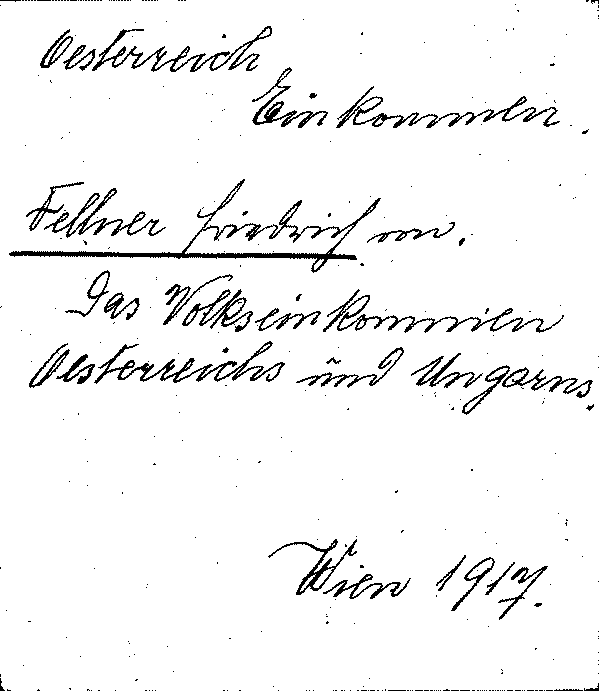 Oesterreich
Einkommen.
Fellner Friedrich von.
Das Volkseinkommen
Oesterreichs und Ungarns.
Wien 1917.